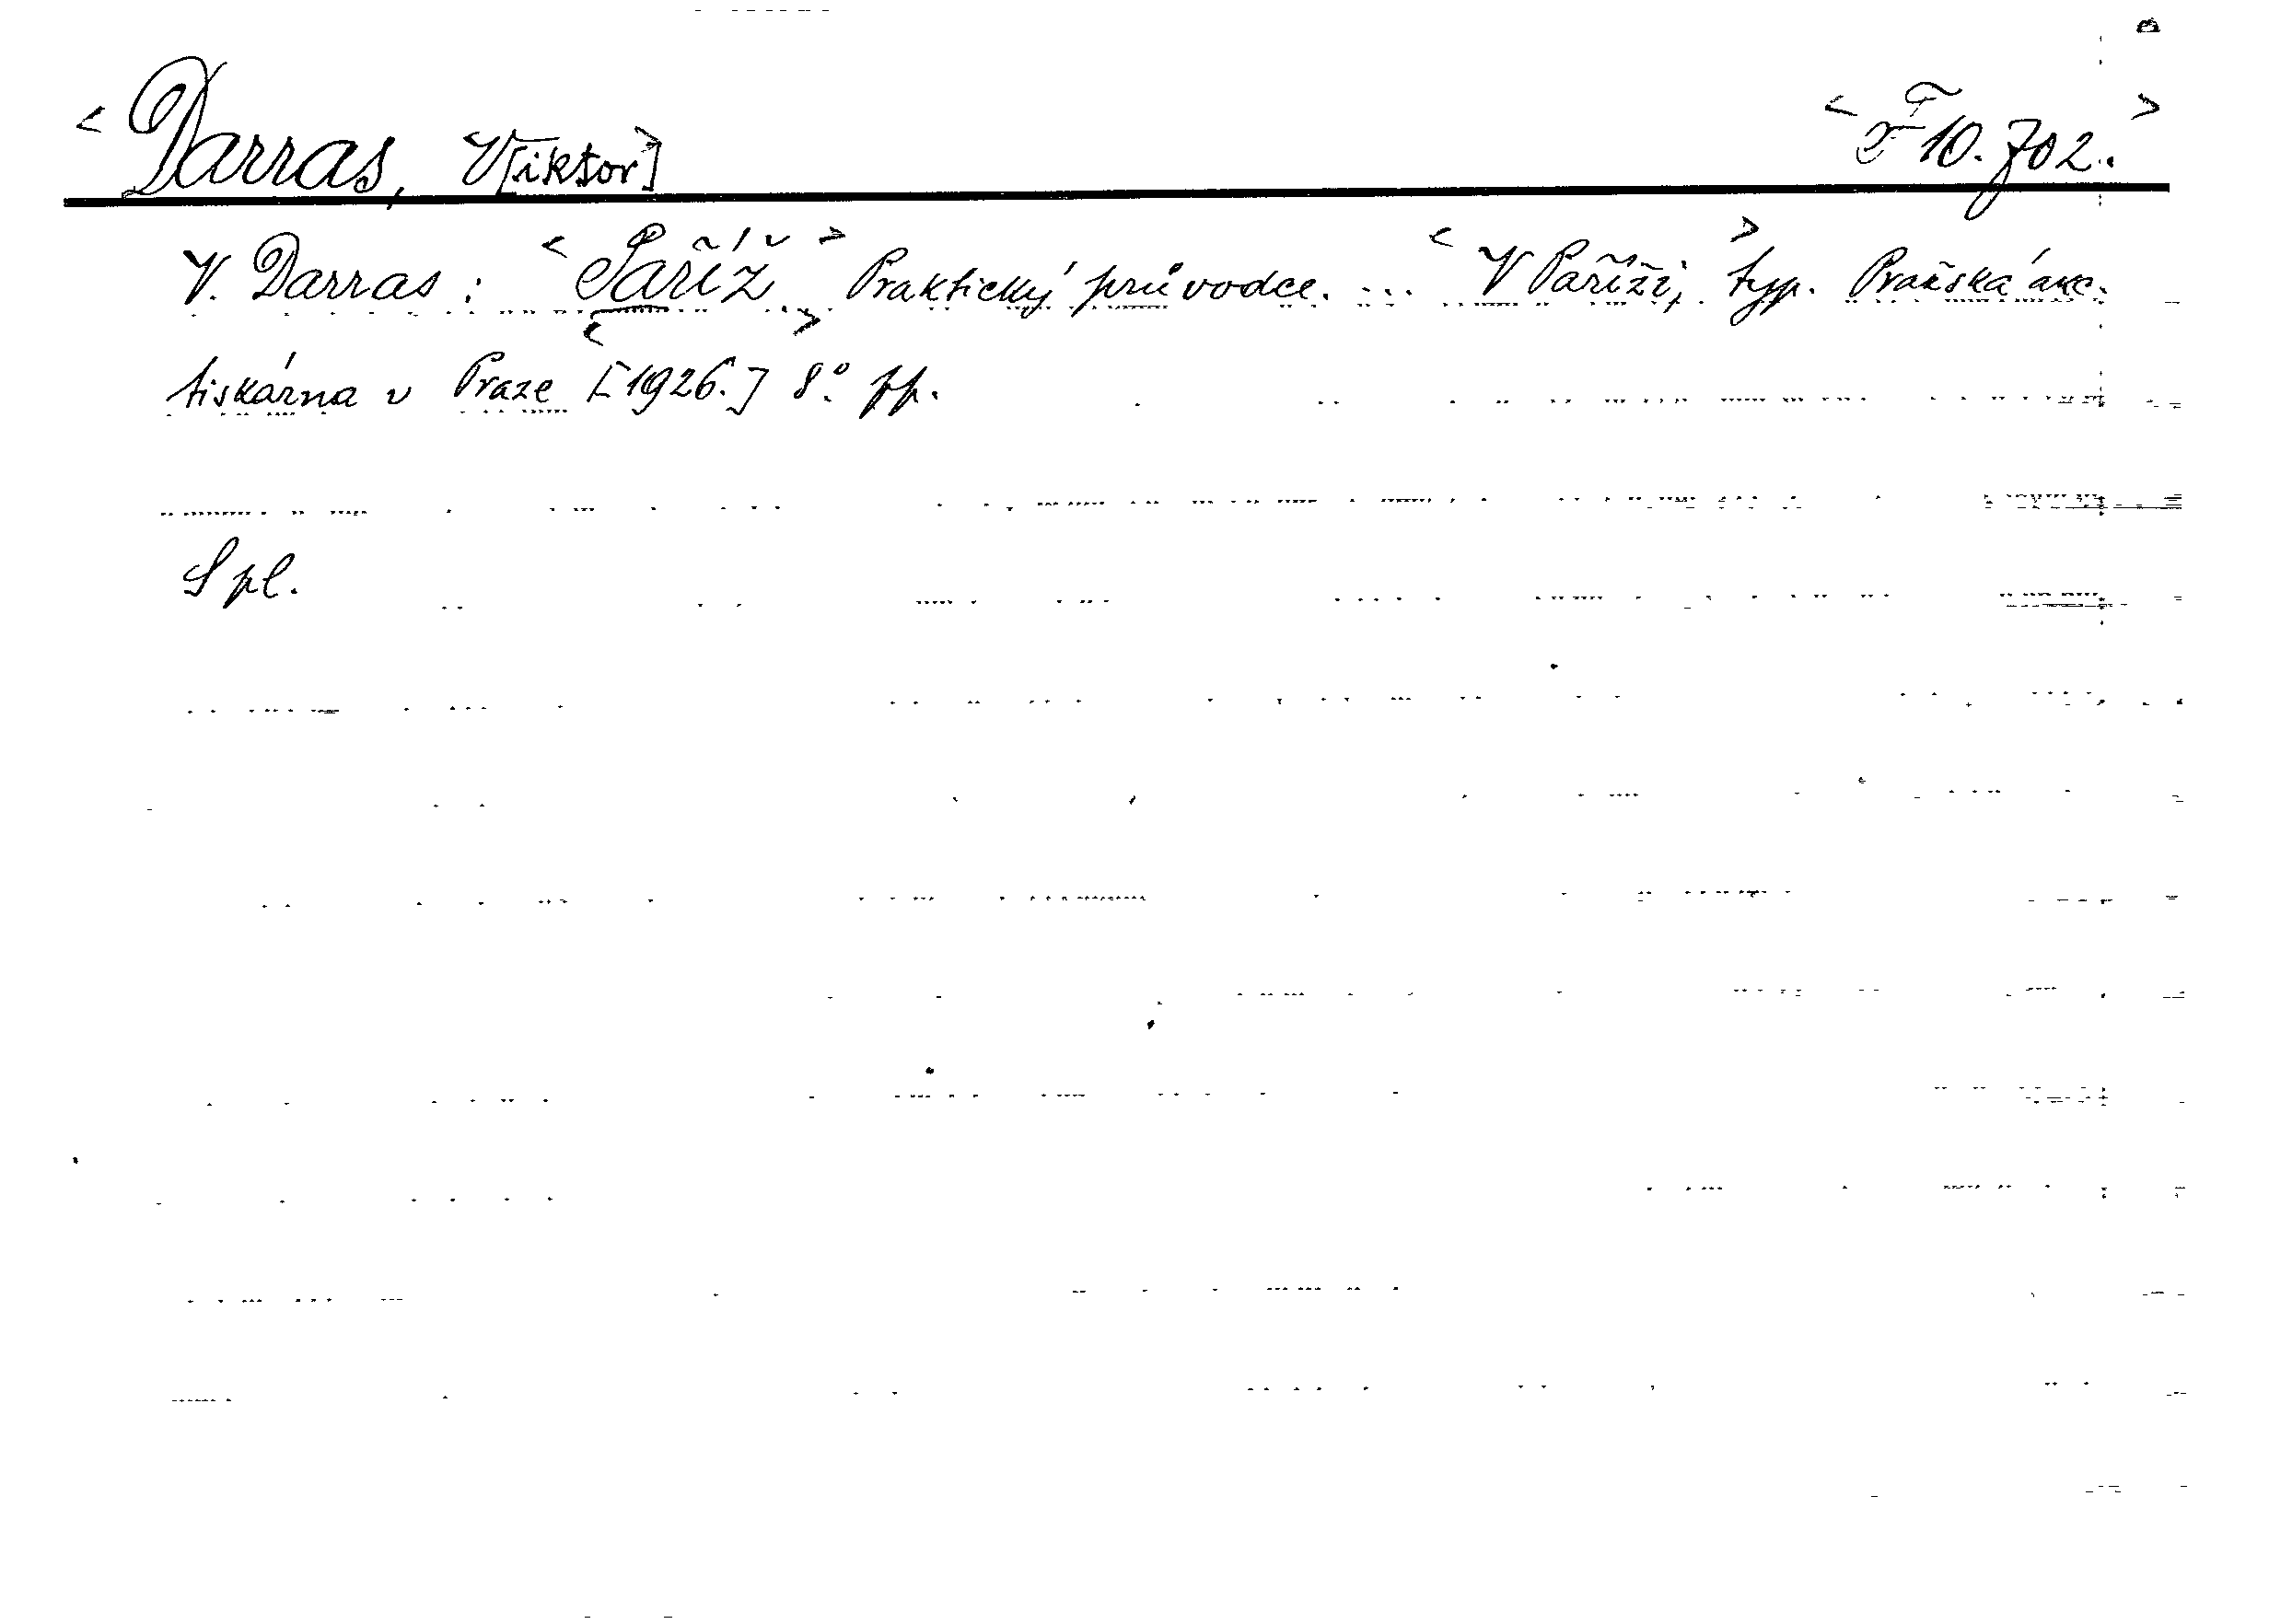 <Darras, V[iktor]> <F 10.702.>
V. Darras: <Paříž.> Praktický průvodce. ... <V Paříži,> typ. Pražská akc.
tiskárna v Praze <[1926.]> 8° pp.
Spl.